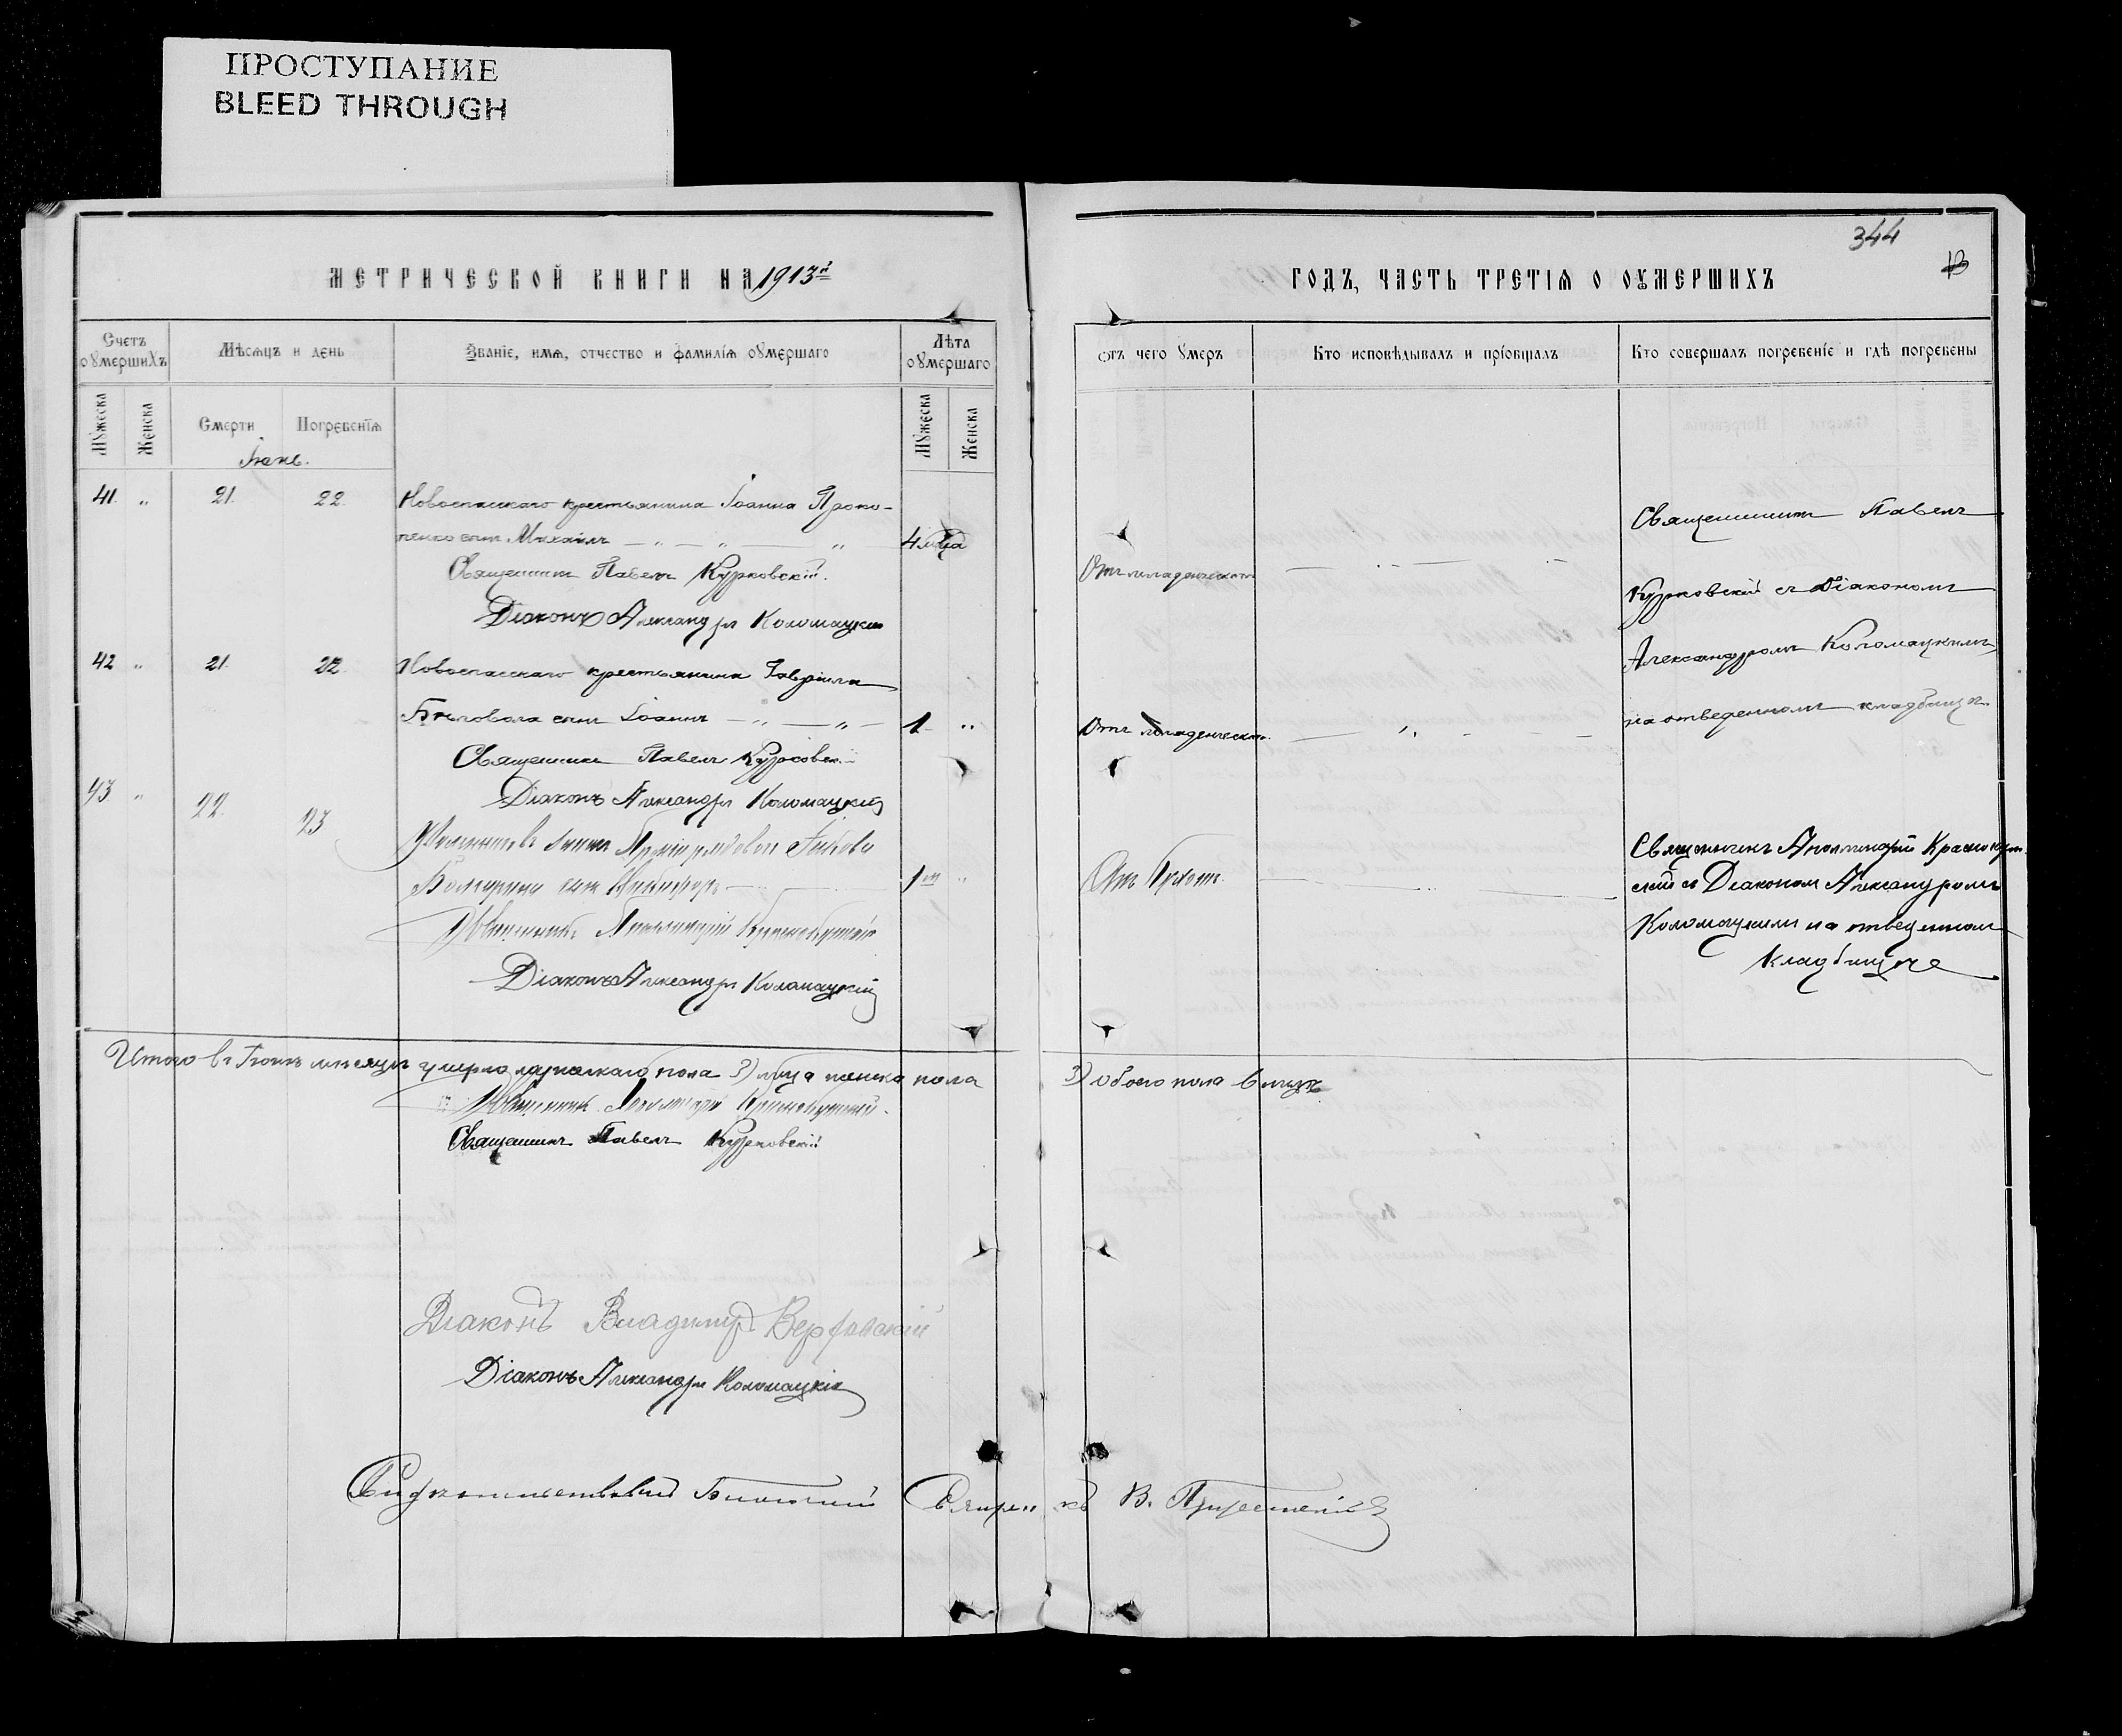 ПРОСТУПАНИЕ
BLEED THROUGH
344
13
МЕТРИЧЕСКОЙ КНИГИ НА 1913й
ГОДЪ, ЧАСТЬ ТРЕТІѦ О ОУМЕРШИХЪ
Счетъ оумершихъ
Мѣсяцъ и день
Званіе, имѧ, отчество и фамиліѧ оумершаго
Лѣта оумершаго
отъ чего умеръ
Кто исповѣдывалъ и пріобщалъ
Кто совершалъ погребеніе и гдѣ погребены
Мужеска
Женска
Смерти
Погребеніѧ
Мужеска
Женска
Іюнь.
41 „ 21. 22. Новоспасскаго крестьянина Іоанна Проко-
пенко сынъ Михаилъ 4 мѣса
Отъ младенческой
Священникъ Павелъ Курковскій.
Діаконъ Александръ Коломацкій
Священникъ Павелъ
Курковскій съ Діакономъ
Александромъ Коломацкимъ
на отведенномъ кладбищѣ.
42 „ 21. 22. Новоспасскаго крестьянина Гавріила
Бѣловола сынъ Іоаннъ 1 „
Отъ младенческой.
Священникъ Павелъ Курковскій
Діаконъ Александръ Коломацкій
43 „ 22. 23
сынъ 1 „
Отъ
Священникъ Аполлинарій Краснокут-
скій съ Діакономъ Александромъ
Коломацкимъ на отведенном
кладбище
Священникъ Аполлинарій Краснокутскій
Діаконъ Александръ Коломацкій
Итого въ Іюнѣ мѣсяцѣ умерло мужескаго пола 3) лица женска пола 3) обоего пола 6 лицъ
Священникъ Аполлинарій Краснокутскій.
Священникъ Павелъ Курковскій
Діаконъ Владимиръ
Діаконъ Александръ Коломацкій
Свидѣтельствовалъ Благочинный Священникъ В.